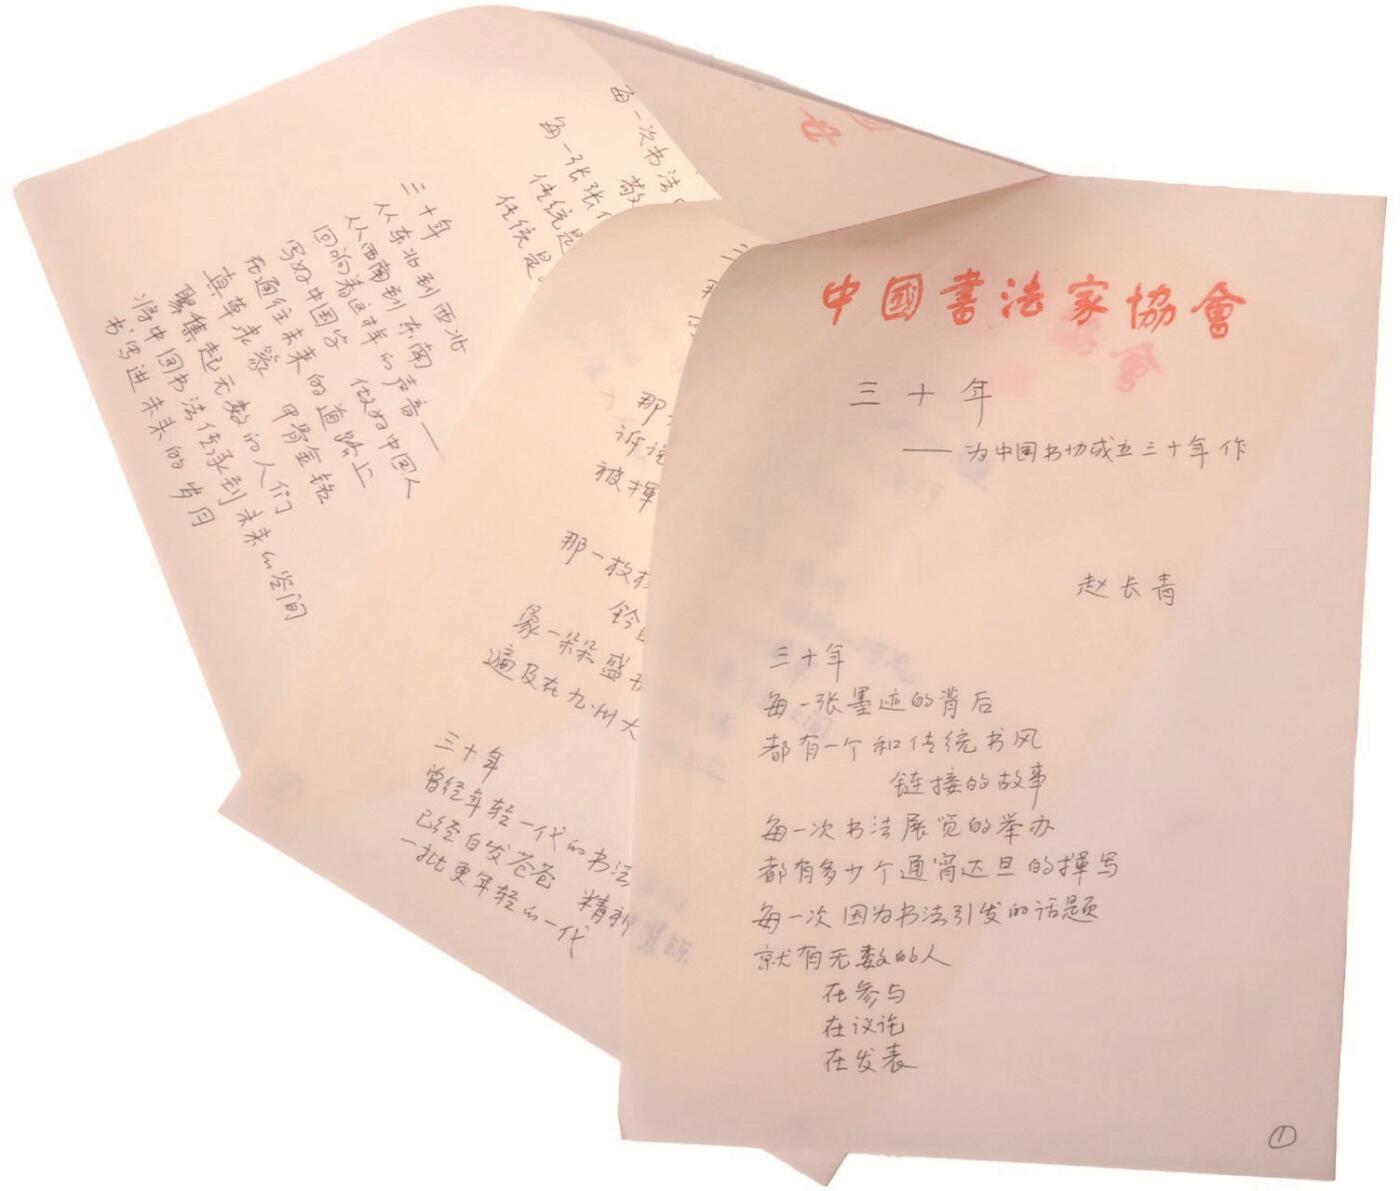 中國書法家協會
三十年
——为中国书协成立三十年作
赵长青
三十年
每一张墨迹的背后
都有一个和传统书风
链接的故事
每一次书法展览的举办
都有多少个通宵达旦的挥写
每一次因为书法引发的话题
就有无数的人
在参与
在议论
在发表
①
那
诉说
被挥
那一枚枚
钤
象一朵朵盛
遍及在九州大
三十年
曾经年轻一代的书法
已经白发苍苍 精神
一批更年轻的一代
每一次书法
敬
每一张张
传统是
传统是
三十年
从东北到西北
从西南到东南
回响着这样的声音——
写好中国字 做好中国人
在通往未来的道路上
真草隶篆 甲骨金铭
聚集起无数的人们
将中国书法传承到未来的空间
书写进未来的岁月